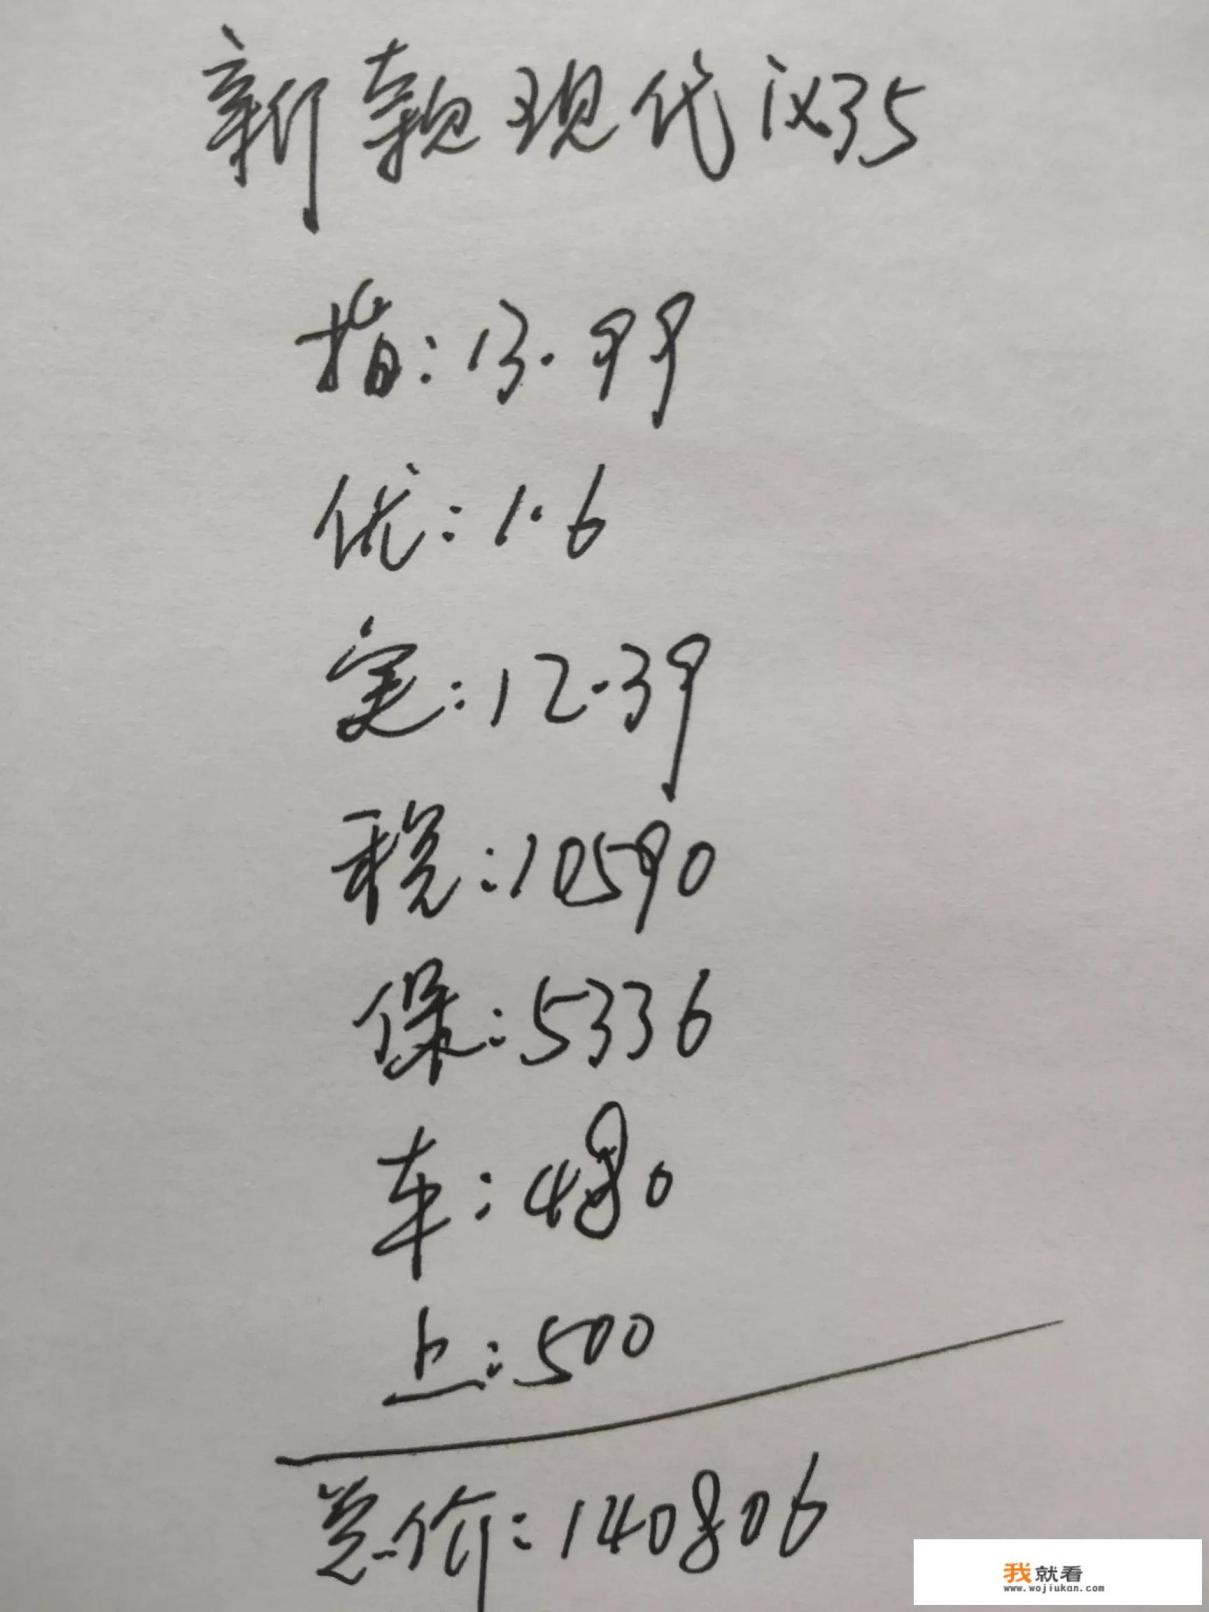 新款现代ix35
指:13.99
优:1.6
实:12.39
税:10590
保:5336
车:480
上:500
总价:140806
我就看
www.wojiukan.com